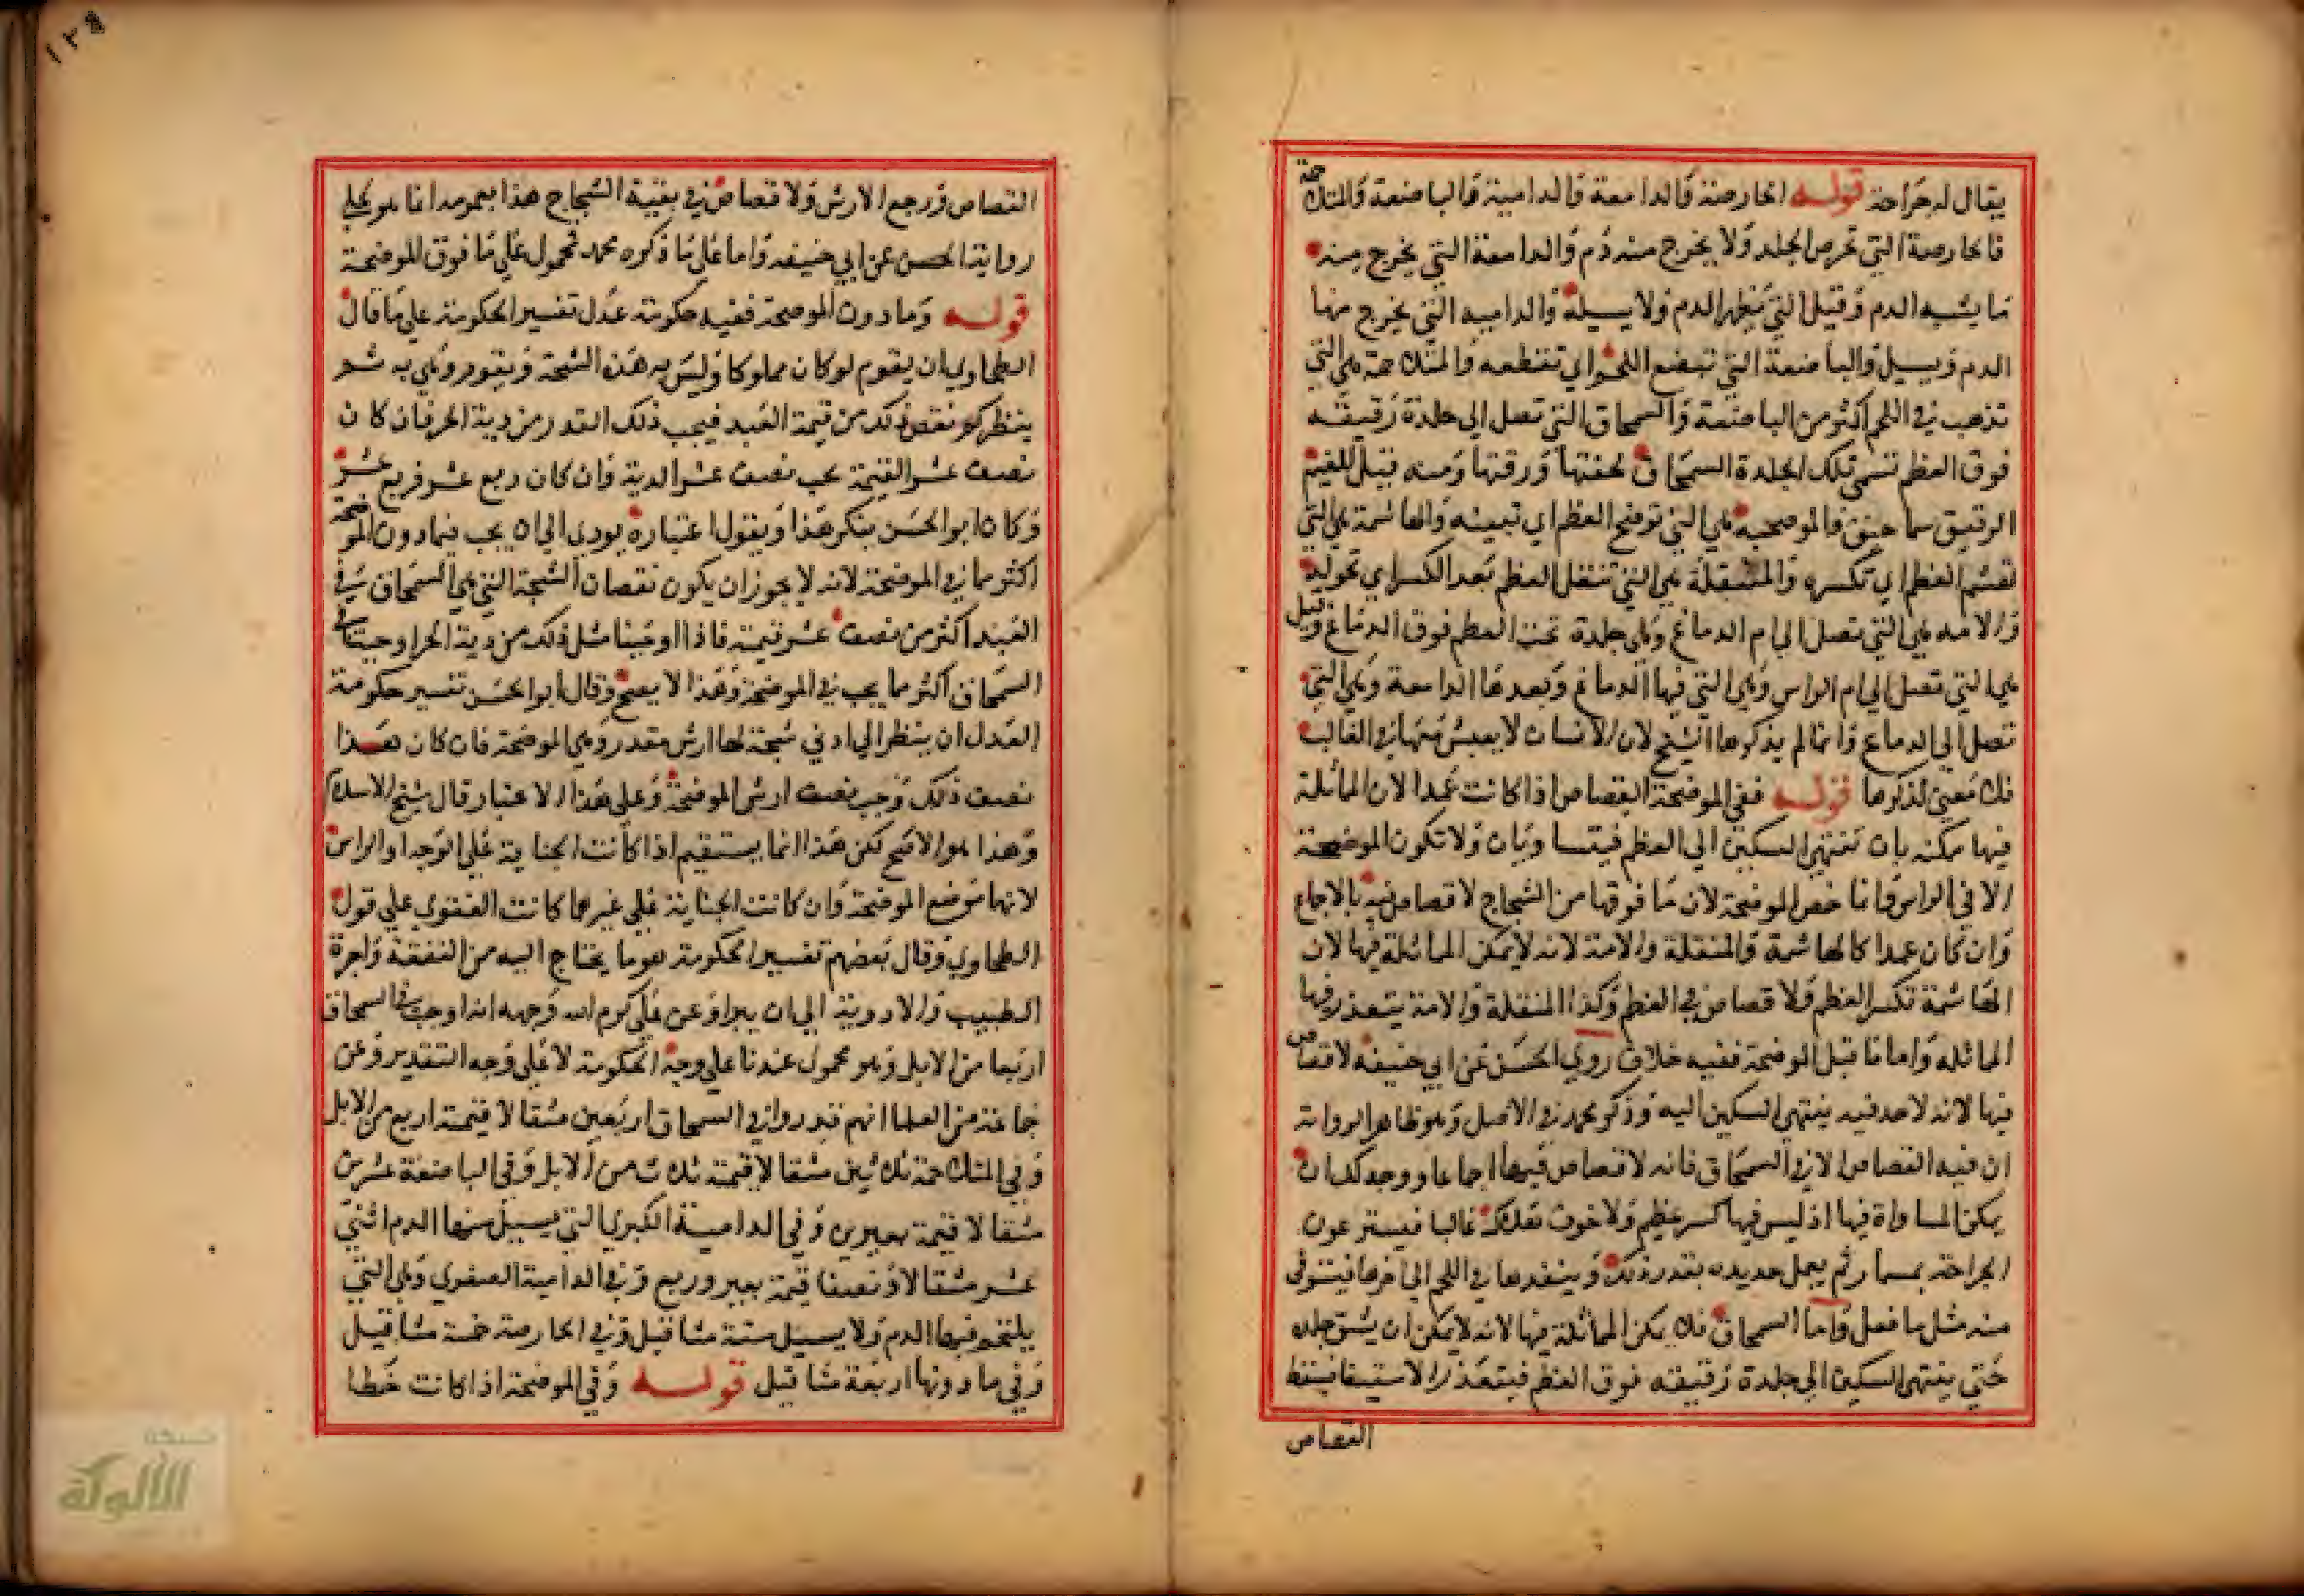 يقال له جراحة قوله الحارصة والدامعة والدامية والباضعة والمتلاحمة
فالحارصة التي تحرص الجلد ولا يخرج منه دم والدامعة التي يخرج منه
ما يشبه الدم وقيل التي تظهر الدم ولا يسيله والداميه التي يخرج منها
الدم ويسيل والباضعة التي تبضع اللحم اي تقطعه والمتلاحمة هي التي
تذهب في اللحم اكثر من الباضعة والسمحاق التي تصل الي جلدة رقيقه
فوق العظم تسمي تلك الجلدة السمحاق لخفتها ورقتها ومنه قيل للغيم
الرقيق سماحيق والموضحه هي التي توضح العظم اي تبينه والهاشمة هي التي
تهشم العظم اي تكسره والمنقلة هي التي تنقل العظم بعد الكسر اي تحوله
والامه هي التي تصل الي ام الدماغ وهي جلدة تحت العظم فوق الدماغ وقيل
هي التي تصل الي ام الراس وهي التي فيها الدماغ وبعدها الدامعة وهي التي
تصل الي الدماغ وانما لم يذكرها الشيخ لان الانسان لا يعيش معها في الغالب
فلا معني لذكرها قوله ففي الموضحة القصاص اذا كانت عمدا لان المماثلة
فيها ممكنه بان تنتهي السكين الي العظم فيتساويان ولا تكون الموضحة
الا في الراس وانما خص الموضحة لان ما فوقها من الشجاج لا قصاص فيه بالاجماع
وان كان عمدا كالهاشمة والمنقلة والامة لانه لا يمكن المماثلة فيها لان
الهاشمة تكسر العظم ولا قصاص في العظم وكذا المنقلة والامة يتعذر فيها
المماثله واما ما قبل الموضحة ففيه خلاف روي الحسن عن ابي حنيفه لا قصاص
فيها لانه لا حد فيه ينتهي السكين اليه وذكر محمد في الاصل وهو ظاهر الرواية
ان فيه القصاص الا في السمحاق فانه لا قصاص فيها اجماعا ووجه ذلك ان
يمكن المساواة فيها اذ ليس فيها كسر عظم ولا خوف هلاك غالبا فيسبر عون
الجراحة بمسبار ثم يعمل حديده بقدر ذلك وينفذها في اللحم الي اخرها فيستوفي
منه مثل ما فعل واما السمحاق فلا يمكن المماثلة فيها لانه لا يمكن ان يشق جلده
حتي ينتهي السكين الي جلدة رقيقه فوق العظم فيتعذر الاستيفا فيسقط
القصاص
١٣٩
القصاص ورجع الارش ولا قصاص في بقية الشجاج هذا بعمومه انما هو علي
رواية الحسن عن ابي حنيفه واما علي ما ذكره محمد محمول علي ما فوق الموضحة
قوله وما دون الموضحة ففيه حكومة عدل تفسير الحكومة علي ما قال
الطحاوي ان يقوم لو كان مملوكا وليس به هذه الشجة ويقوم وهي به ثم
ينظر كم نقص ذلك من قيمة العبد فيجب ذلك القدر من دية الحر فان كان
نصف عشر القيمة يجب نصف عشر الدية وان كان ربع عشر فربع عشر
وكان ابو الحسن ينكر هذا ويقول اعتباره يودي الي ان يجب فيما دون الموضحة
اكثر مما في الموضحة لانه لا يجوز ان يكون نقصان الشجة التي هي السمحاق في
العبد اكثر من نصف عشر قيمته فاذا اوجبنا مثل ذلك من دية الحر اوجبنا في
السمحاق اكثر مما يجب في الموضحة وهذا لا يصح وقال ابو الحسن تفسير حكومة
العدل ان ينظر الي ادني شجة لها ارش مقدر وهي الموضحة فان كان هذا
نصف ذلك وجب نصف ارش الموضحة وعلي هذا الاعتبار قال شيخ الاسلام
وهذا هو الاصح لكن هذا انما يستقيم اذا كانت الجناية علي الوجه او الراس
لانهما موضع الموضحة وان كانت الجناية علي غيرهما كانت الفتوي علي قول
الطحاوي وقال بعضهم تفسير الحكومة هو ما يحتاج اليه من النفقة واجرة
الطبيب والادوية الي ان يبرا وعن علي كرم الله وجهه انه اوجب في السمحاق
اربعا من الابل وهو محمول عندنا علي وجه الحكومة لا علي وجه التقدير وعن
جماعة من العلما انهم قدروا في السمحاق اربعين مثقالا قيمة اربع من الابل
وفي المتلاحمة ثلاثين مثقالا قيمة ثلاث من الابل وفي الباضعة عشرين
مثقالا قيمة بعيرين وفي الدامية الكبري التي يسيل منها الدم اثني
عشر مثقالا ونصفا قيمة بعير وربع وفي الدامية الصغري وهي التي
يلتحم فيها الدم ولا يسيل ستة مثاقيل وفي الحارصة خمسة مثاقيل
وفي ما دونها اربعة مثاقيل قوله وفي الموضحة اذا كانت خطا
شبكة
الألوكة